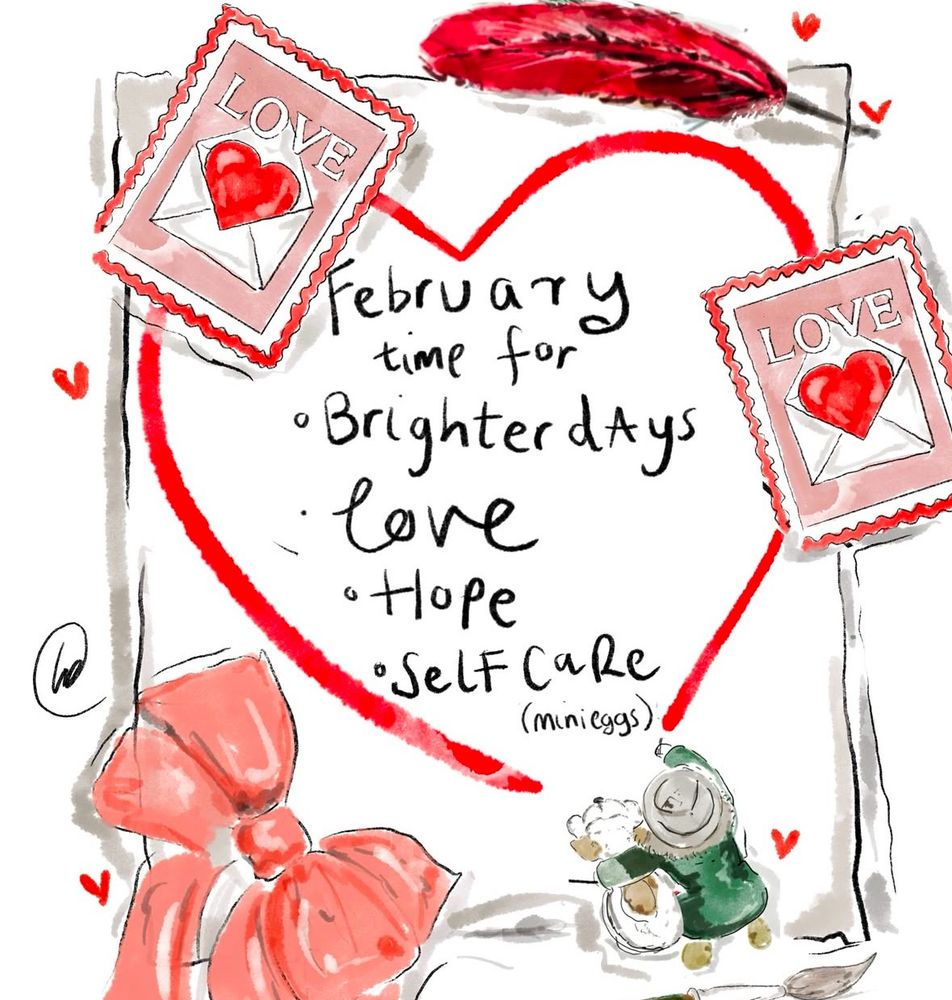 LOVE
LOVE
February
time for
Brighter dAys
love
Hope
SelF CaRe
(minieggs)